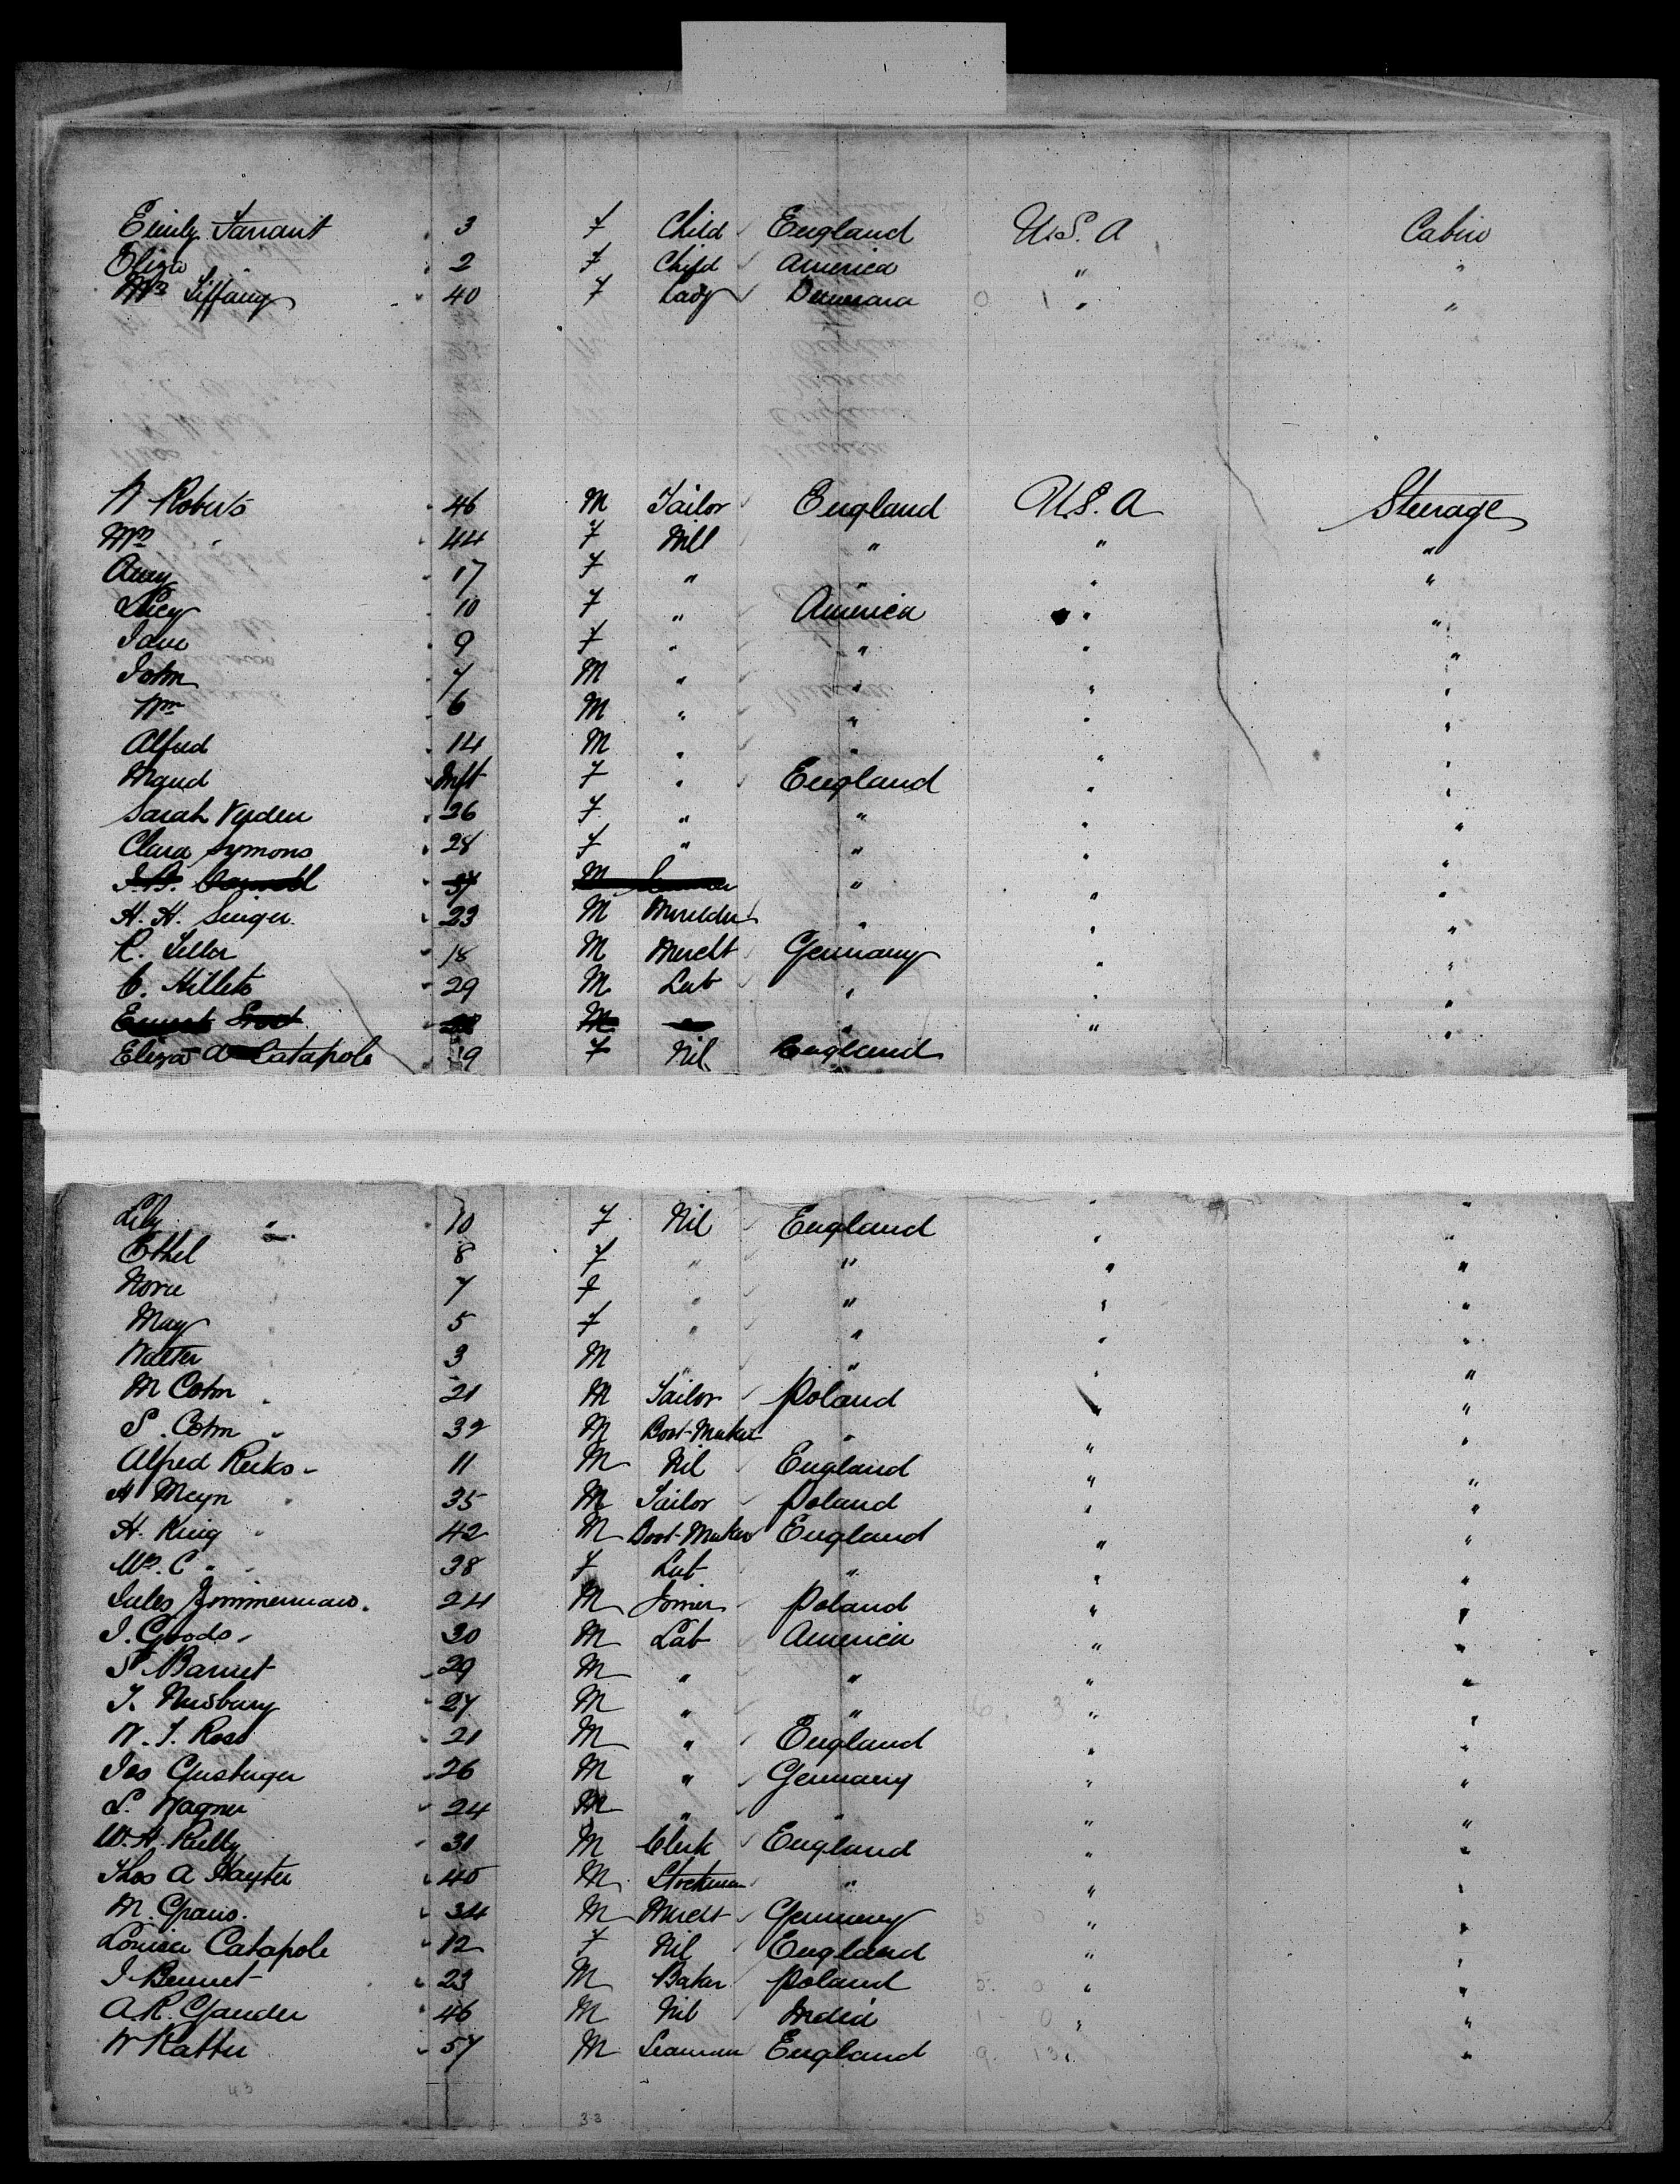 Emily Tarrant 3 F Child England U.S.A Cabin
Eliza " 2 F Child America " "
Mrs Tiffany 40 F Lady Demerara " "
W Roberts 46 M Tailor England U.S.A Steerage
Mrs " 44 F Nil " " "
Amy 17 F " " " "
Lucy 10 F " America " "
Jane 9 F " " " "
John 7 M " " " "
Wm 6 M " " " "
Alfred 14 M " " " "
Maud Inft F " England " "
Sarah Vyden 26 F " " " "
Clara Symons 28 F " " " "
M " " "
H. H. Singer 23 M Moulder " " "
R. Teller 18 M Mercht Germany " "
C. Hillets 29 M Lab " " "
Ernest M " " "
Eliza A Catapole 19 F Nil England
Lily " 10 F Nil England " "
Ethel 8 F " " " "
Norie 7 F " " " "
May 5 F " " " "
Walter 3 M " " " "
M Cohn 21 M Tailor Poland " "
S. Cohn 32 M Boot-Maker " " "
Alfred Reeks 11 M Nil England " "
A Meyn 35 M Tailor Poland " "
H. King 42 M Boot-Maker England " "
Mrs. C " 38 F Lab " " "
Jules Zimmermann 24 M Joiner Poland " "
J. Goods 30 M Lab America " "
S Barnet 29 M " " " "
T. Nusbury 27 M " " " "
W. J. Ross 21 M " England " "
Jas Geisberger 26 M " Germany " "
L. Wagner 24 M " " " "
W. H. Kelly 31 M Clerk England " "
Thos A Hayter 40 M Stockman " " "
M. 34 M Mercht Germany " "
Louisa Catapole 12 F Nil England " "
J Bennet 23 M Baker Poland " "
A. R. Gander 46 M Nil India " "
W Ratter 57 M Seaman England " "
43 33